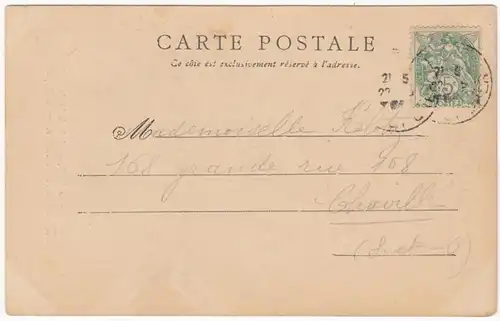 CARTE POSTALE
Ce côté est exclusivement réservé à l'adresse.
21 5
Mademoiselle
168 grande rue 168
Chaville
(S.-et-O)